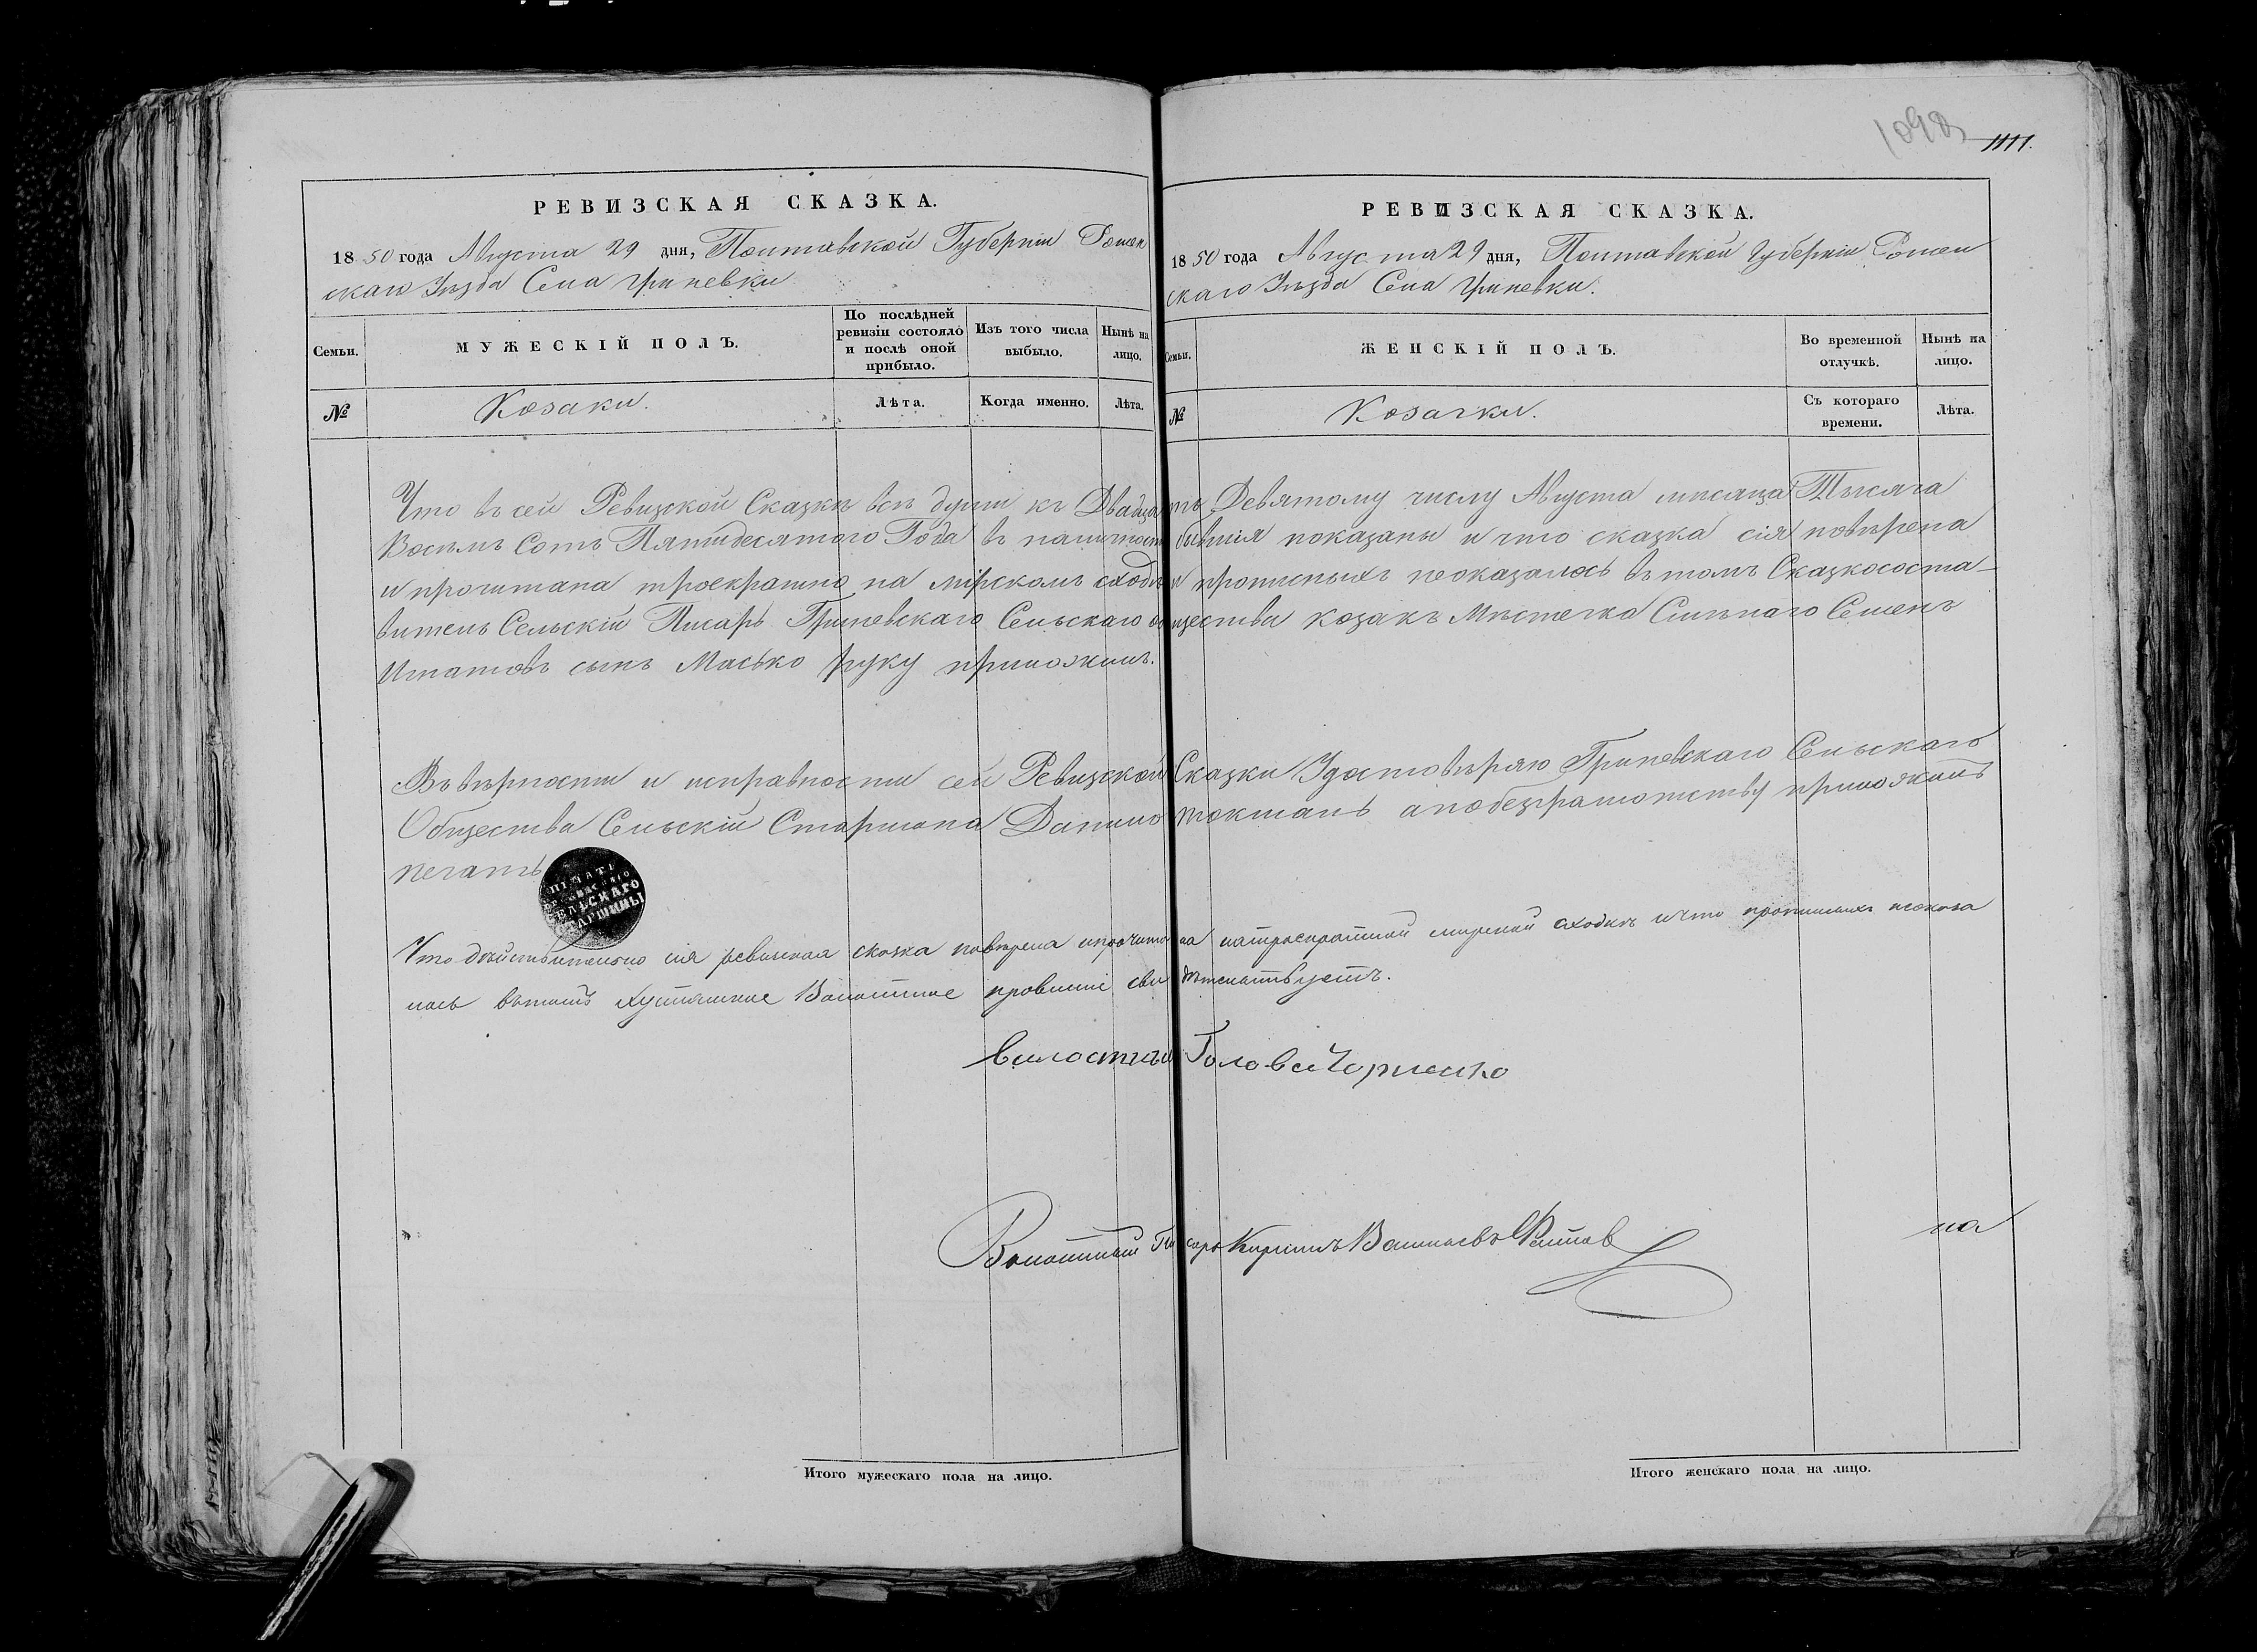 1092
1111.
РЕВИЗСКАЯ СКАЗКА.
1850 года Августа 29 дня, Полтавской Губерніи Ромен
скаго Уѣзда Села Гриневки
Семьи.
МУЖЕСКІЙ ПОЛЪ.
По послѣдней ревизіи состояло и послѣ оной прибыло.
Изъ того числа выбыло.
Нынѣ на лицо.
№
Козаки.
Лѣта.
Когда именно.
Лѣта.
РЕВИЗСКАЯ СКАЗКА.
1850 года Августа 29 дня, Полтавской Губерніи Ромен
скаго Уѣзда Села Гриневки.
Семьи.
ЖЕНСКІЙ ПОЛЪ.
Во временной отлучкѣ.
Нынѣ на лицо.
№
Козачки.
Съ котораго времени.
Лѣта.
Что въ сей Ревизской Сказкѣ всѣ души къ Двадцать Девятому числу Августа мѣсяца Тысяча
Восемь Сотъ Пятидесятого Года въ показаны и что сказка сія повѣрена
и прочитана троекратно на мірскомъ сходѣ и прописныхъ неоказалось въ томъ Сказкососта-
витель Сельскій Писарь Гриневскаго Сельскаго общества козакъ Мѣстечка Смѣлаго Семенъ
Игнатовъ сынъ Масько руку приложилъ.
Въ вѣрности и исправности сей Ревизской Сказки Удостовѣряю Гриневскаго Сельскаго
Общества Сельскій Старшина Данило Токманъ а побезграмотству приложилъ
печать
ПЕЧАТЬ
СЕЛЬСКАГО
СТАРШИНЫ
Что дѣйствительно сія ревизская сказка повѣрена и прочитана натроекратной мирской сходкѣ и что прописныхъ неоказа
лось вътомъ Волостное правленіе свидѣтельствуетъ.
Волостный Голова Чорненко
Волостный Писарь Кирилъ Васильевъ
на
Итого мужескаго пола на лицо.
Итого женскаго пола на лицо.